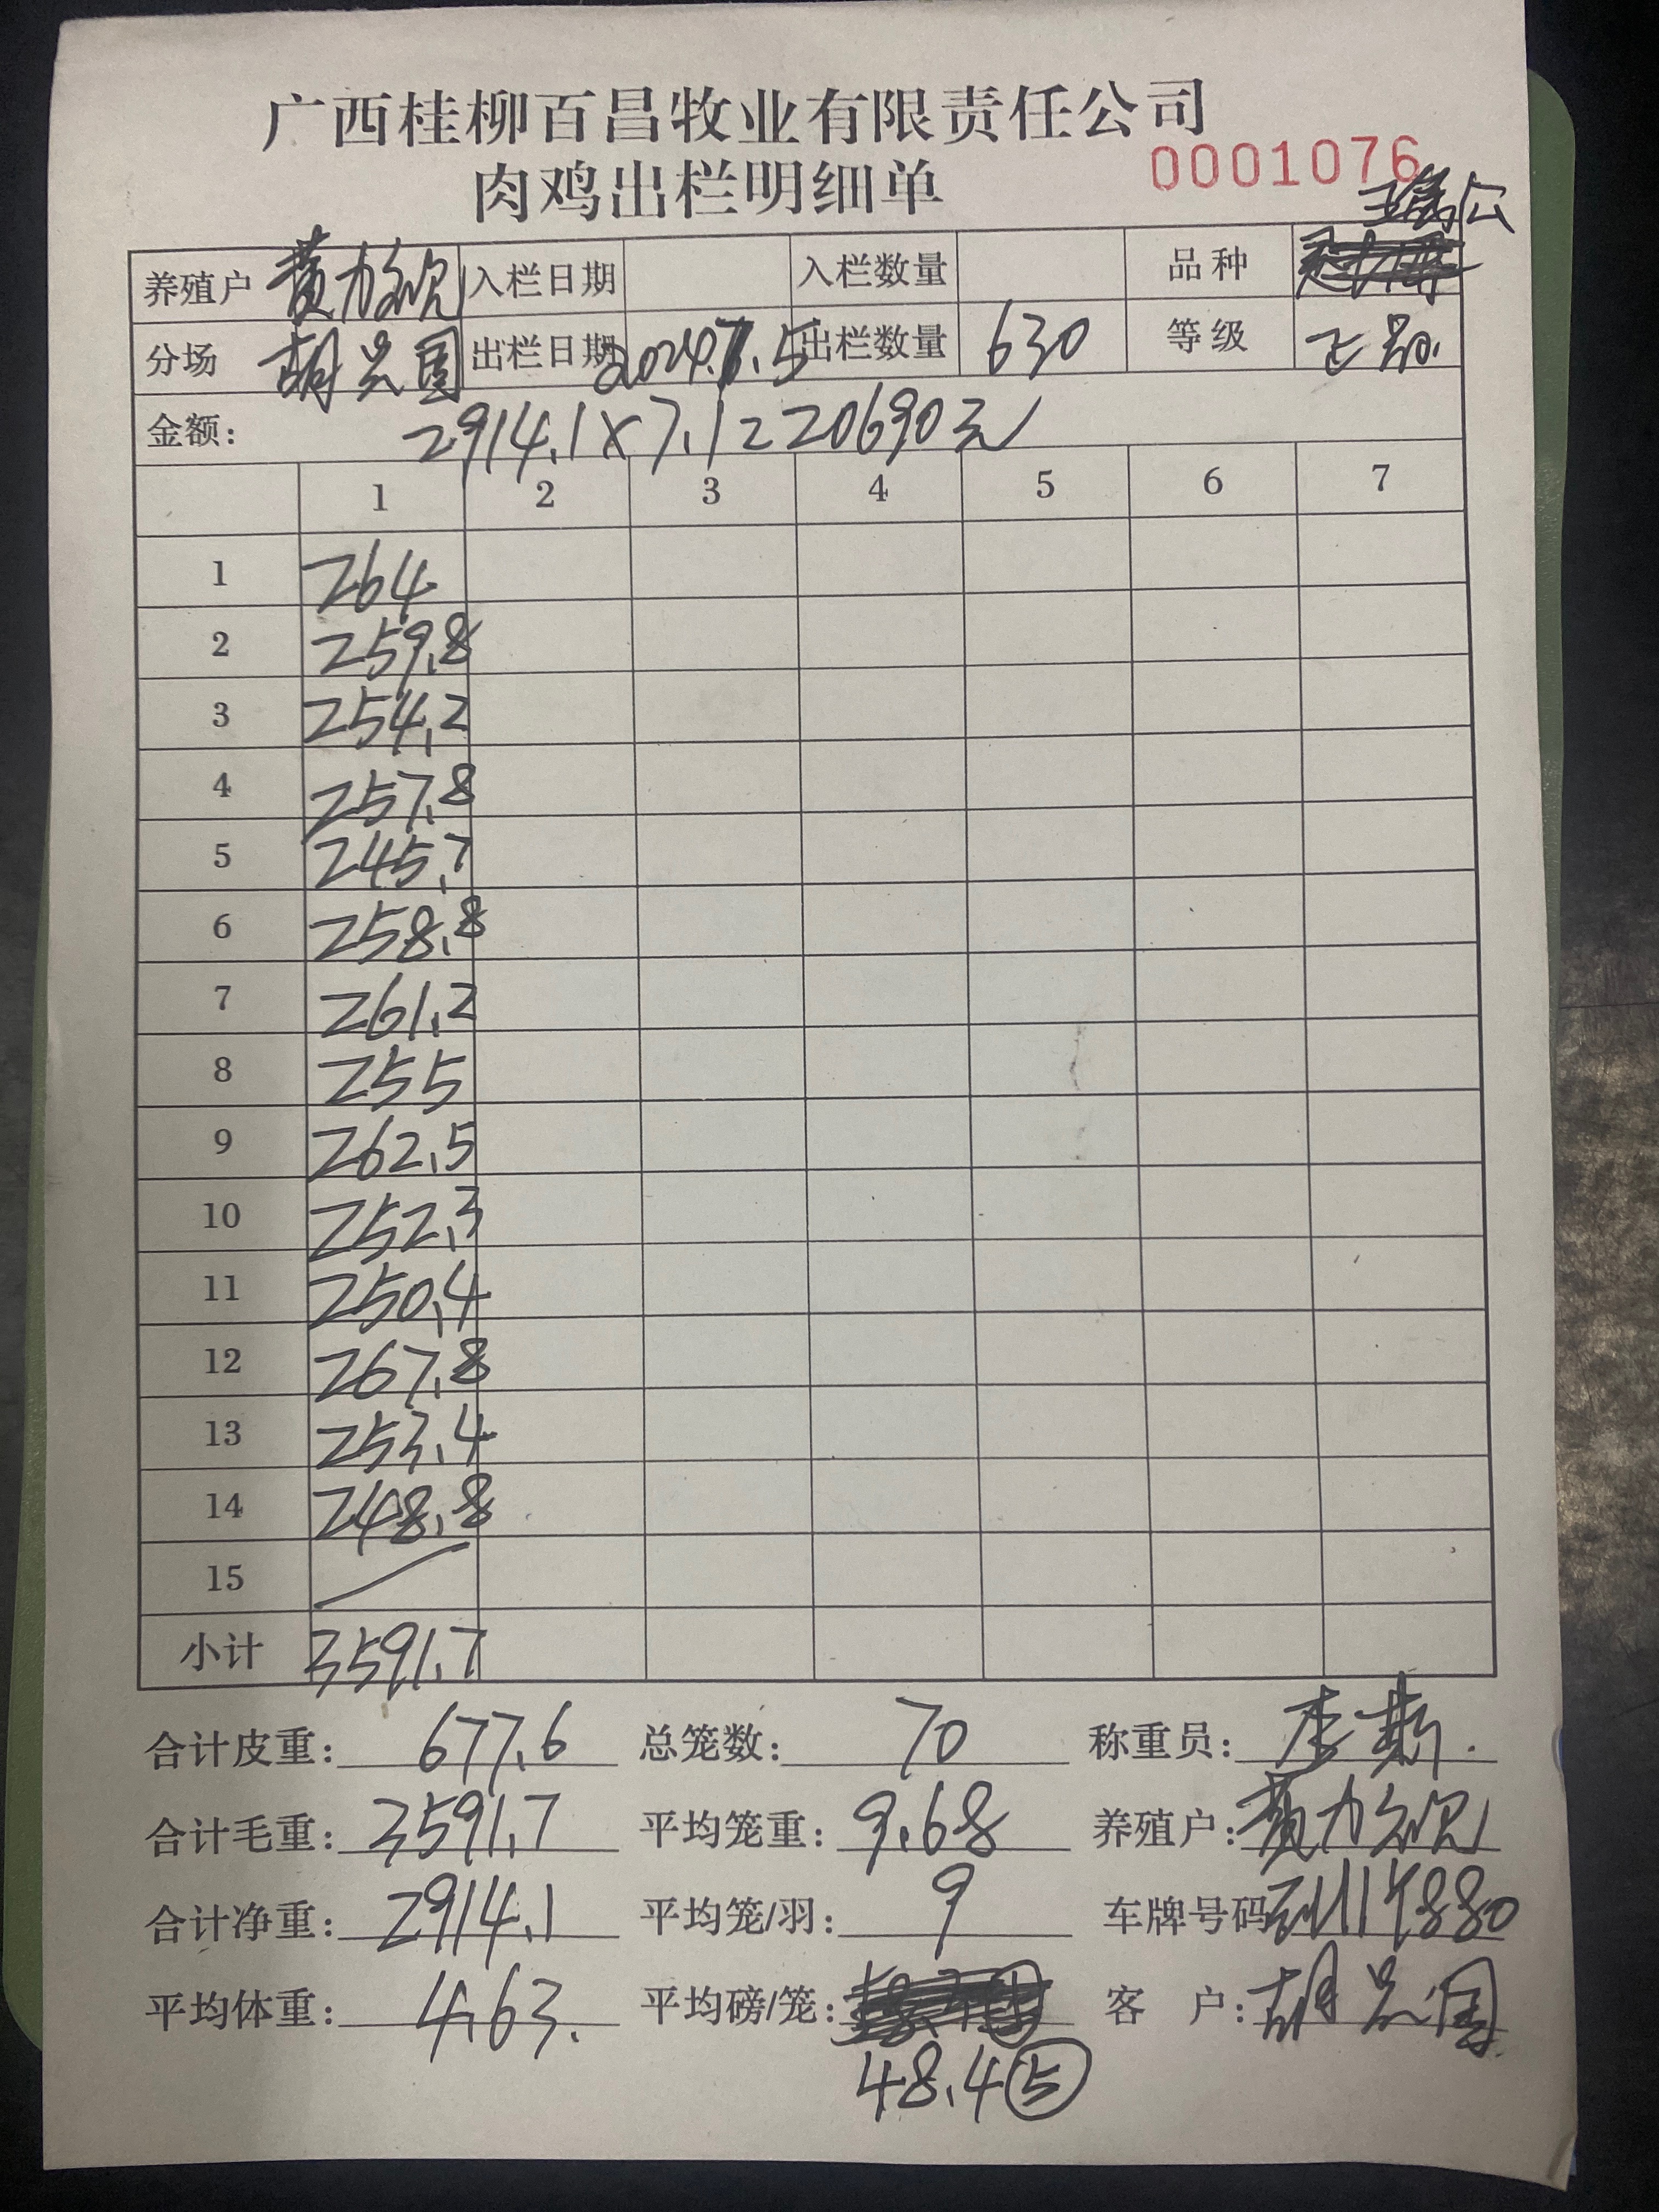 广西桂柳百昌牧业有限责任公司
肉鸡出栏明细单
0001076
养殖户 黄力欢 入栏日期 入栏数量 品种
分场 胡兴国 出栏日期 2024.7.5 出栏数量 630 等级
金额： 2914.1×7.1=20690元
1 2 3 4 5 6 7
1 264
2 259.8
3 254.2
4 257.8
5 245.7
6 258.8
7 261.2
8 255
9 262.5
10 252.3
11 250.4
12 267.8
13 253.4
14 248.8
15
小计 3591.7
合计皮重： 677.6 总笼数： 70 称重员：
合计毛重： 3591.7 平均笼重： 9.68 养殖户： 黄力欢
合计净重： 2914.1 平均笼/羽： 9 车牌号码
平均体重： 4.63. 平均磅/笼： 客 户： 胡兴国
48.4⑤